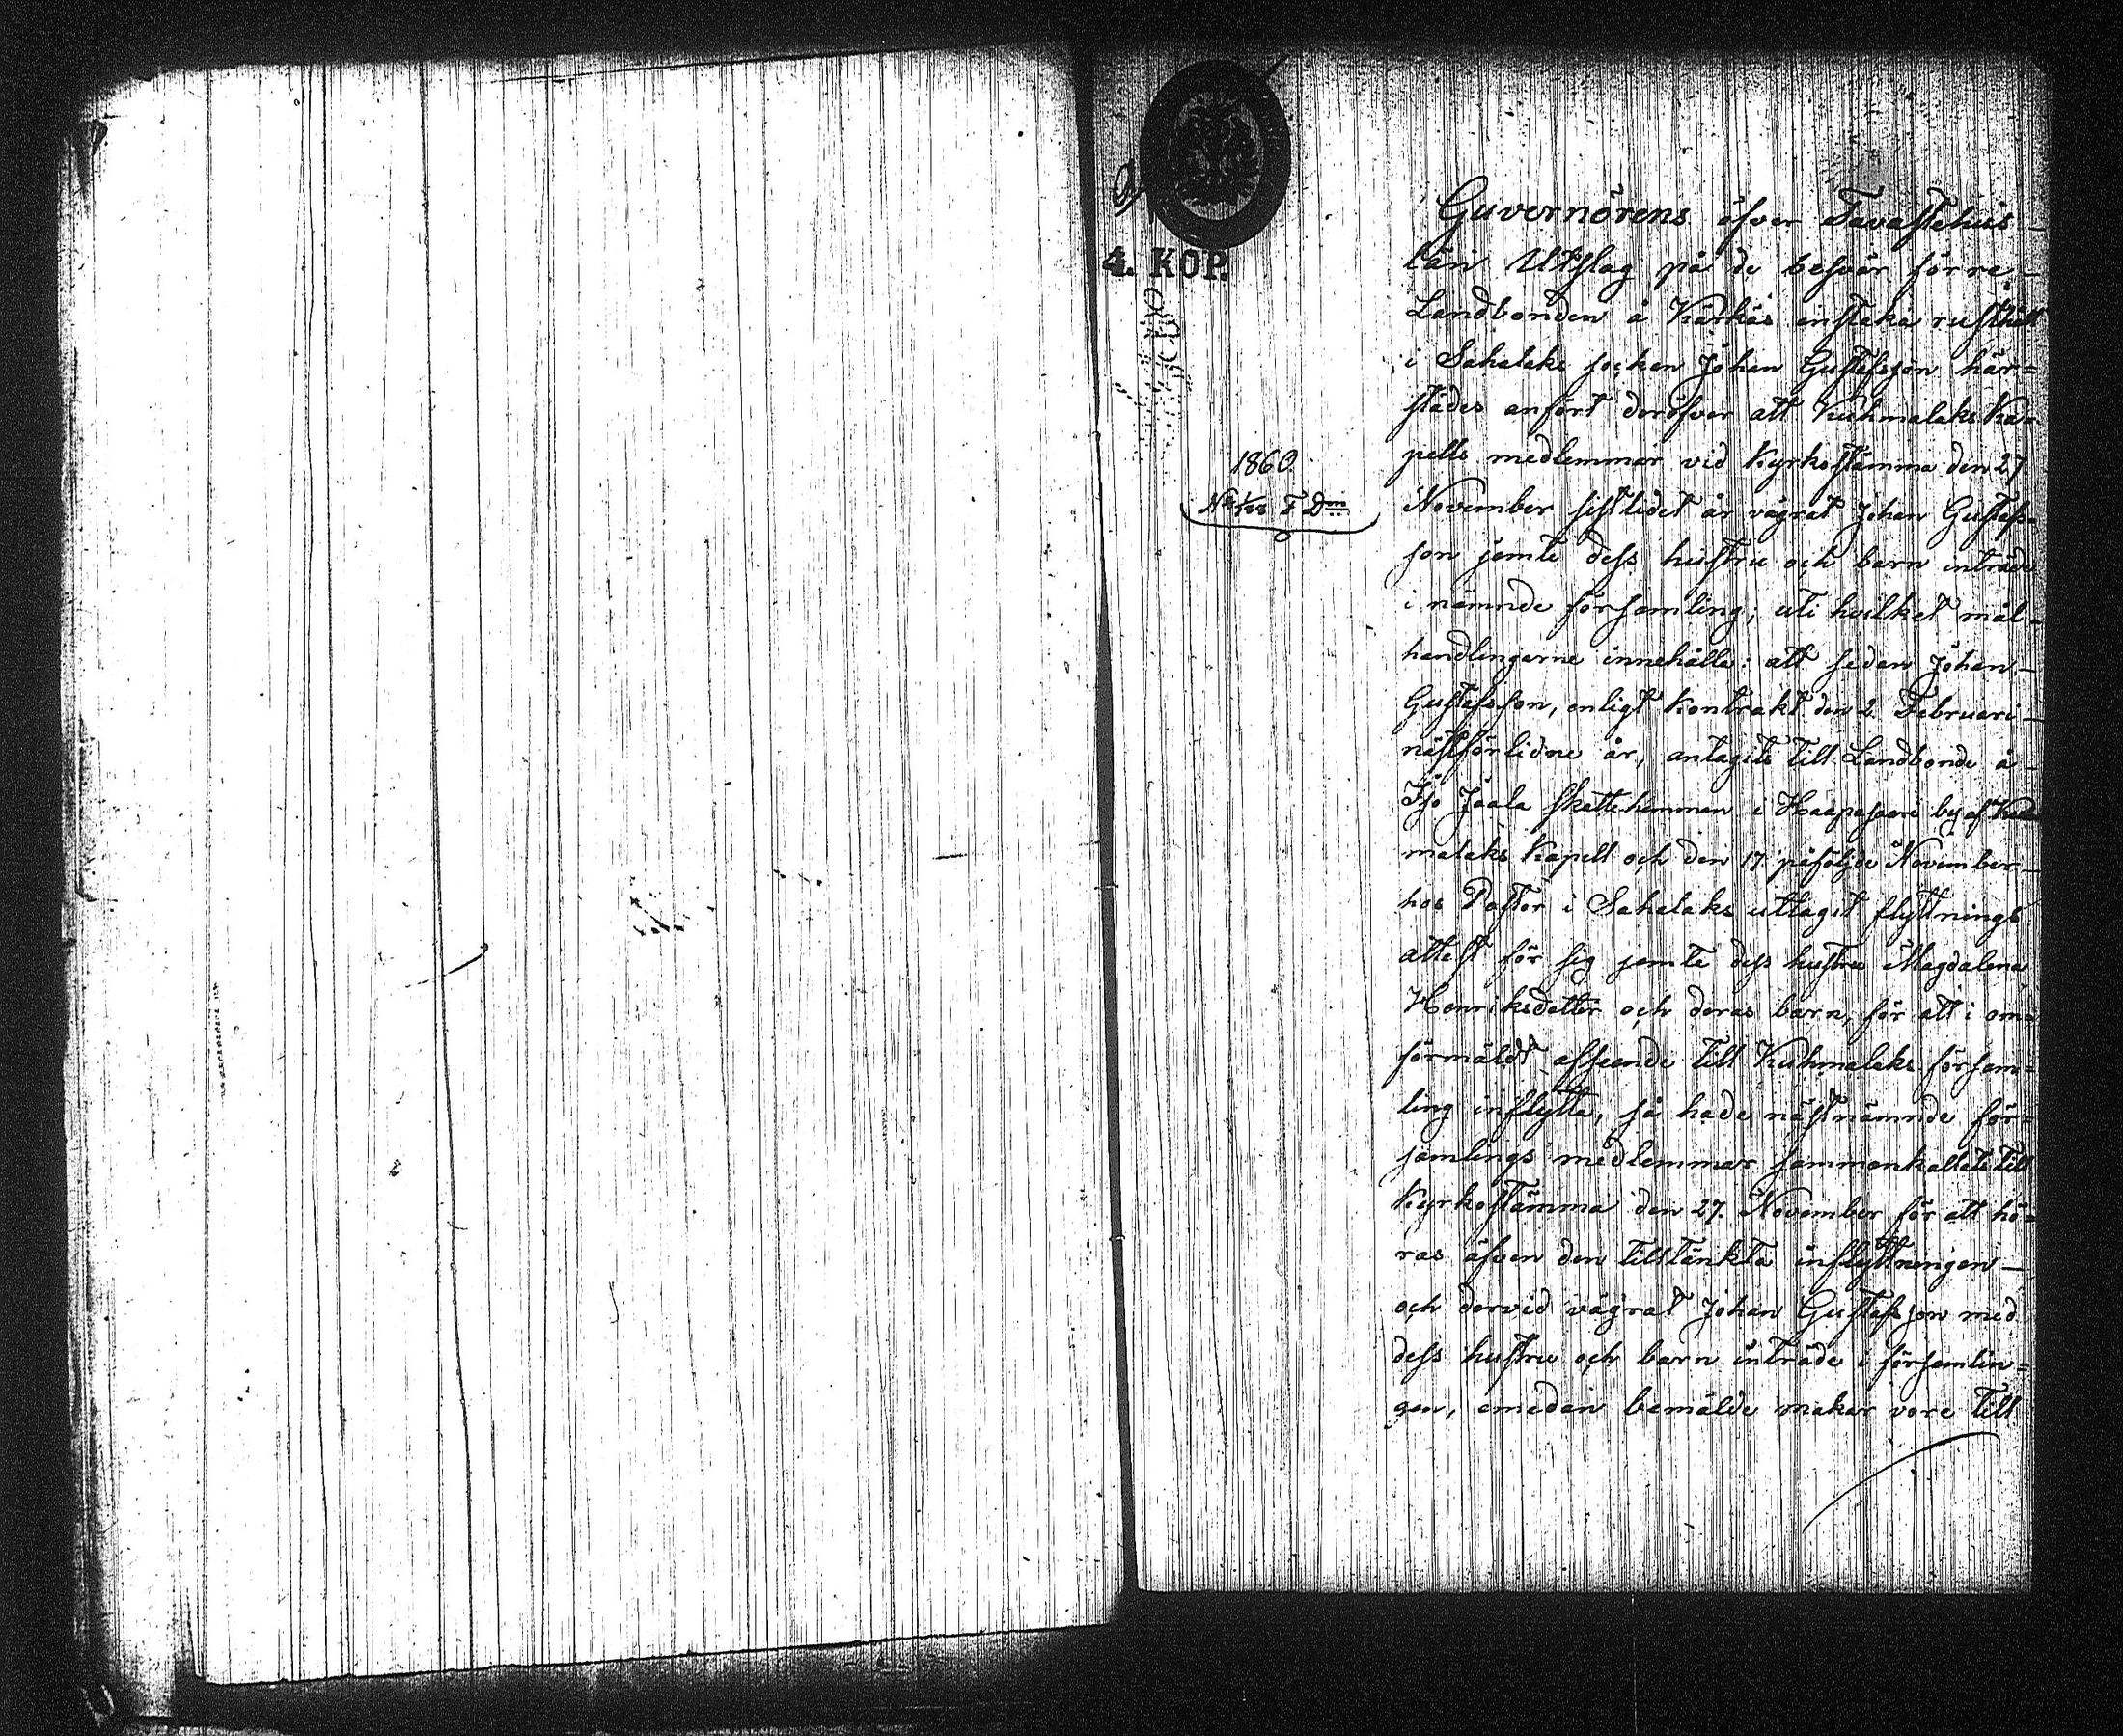 4. KOP.
1860.
Guvernörens öfver Tavastehus
län Utslag på de besvär förre
Landbonden å Kärkäs enstaka rusthåll
i Sahalaks socken Johan Gustafsson här=
städes anfört deröfver att Kuhmalaks Ka=
pells medlemmar vid Kyrkostämma den 27
November sistlidet år vägrat Johan Gustafs=
son jemte dess hustru och barn inträde
i nämnde församling; uti hvilket mål
handlingarne innehålla: att sedan Johan
Gustafsson, enligt Kontrakt den 2 Februari
nästförlidne år, antagits till Landbonde å
Iso Jaala skattehemman i Haapasaari by af Kuh
malaks Kapell och den 17 påföljde November
hos Pastor i Sahalaks uttagit flyttnings
attest för sig jemte dess hustru Magdalena
Henriksdotter och deras barn, för att i om=
förmäldt afseende till Kuhmalaks försam=
ling inflytta, så hade nästnämnde för=
samlings medlemmar sammankallats till
Kyrkostämma den 27. November för att hö=
ras öfver den tilltänkta inflyttningen
och dervid vägrat Johan Gustafsson med
dess hustru och barn inträde i församlin=
gen, emedan bemälde makar vore till